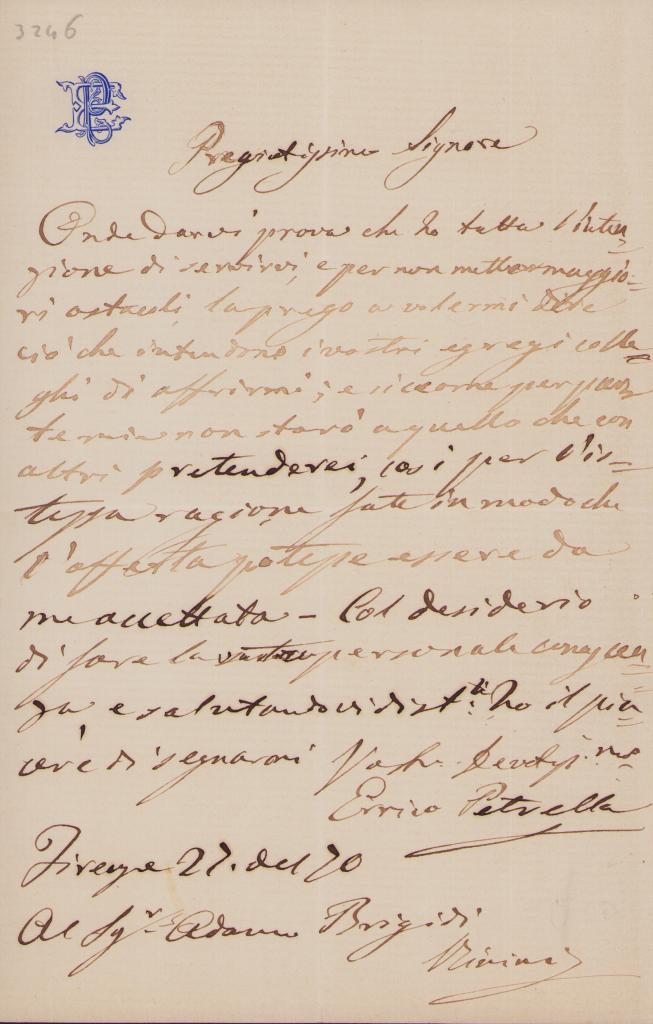 3246
EP
Pregiatissimo Signore
Onde darvi prova che ho tutta l'inten=
zione di servirvi, e per non metter maggio=
ri ostacoli, la prego a volermi dire
ciò che intendono i vostri egregi colle=
ghi di offrirmi; e siccome per par=
te mia non starò a quello che con
altri pretenderei, così per l'is=
tessa ragione fate in modo che
l'offerta potesse essere da
me accettata – Col desiderio
di fare la vostra personale conoscen=
za, e salutandovi distte. ho il pia=
cere di segnarmi Vostr. Devotissmo
Errico Petrella
Firenze 27. del 70
Al Sgr. Adamo Brigidi
Rimini